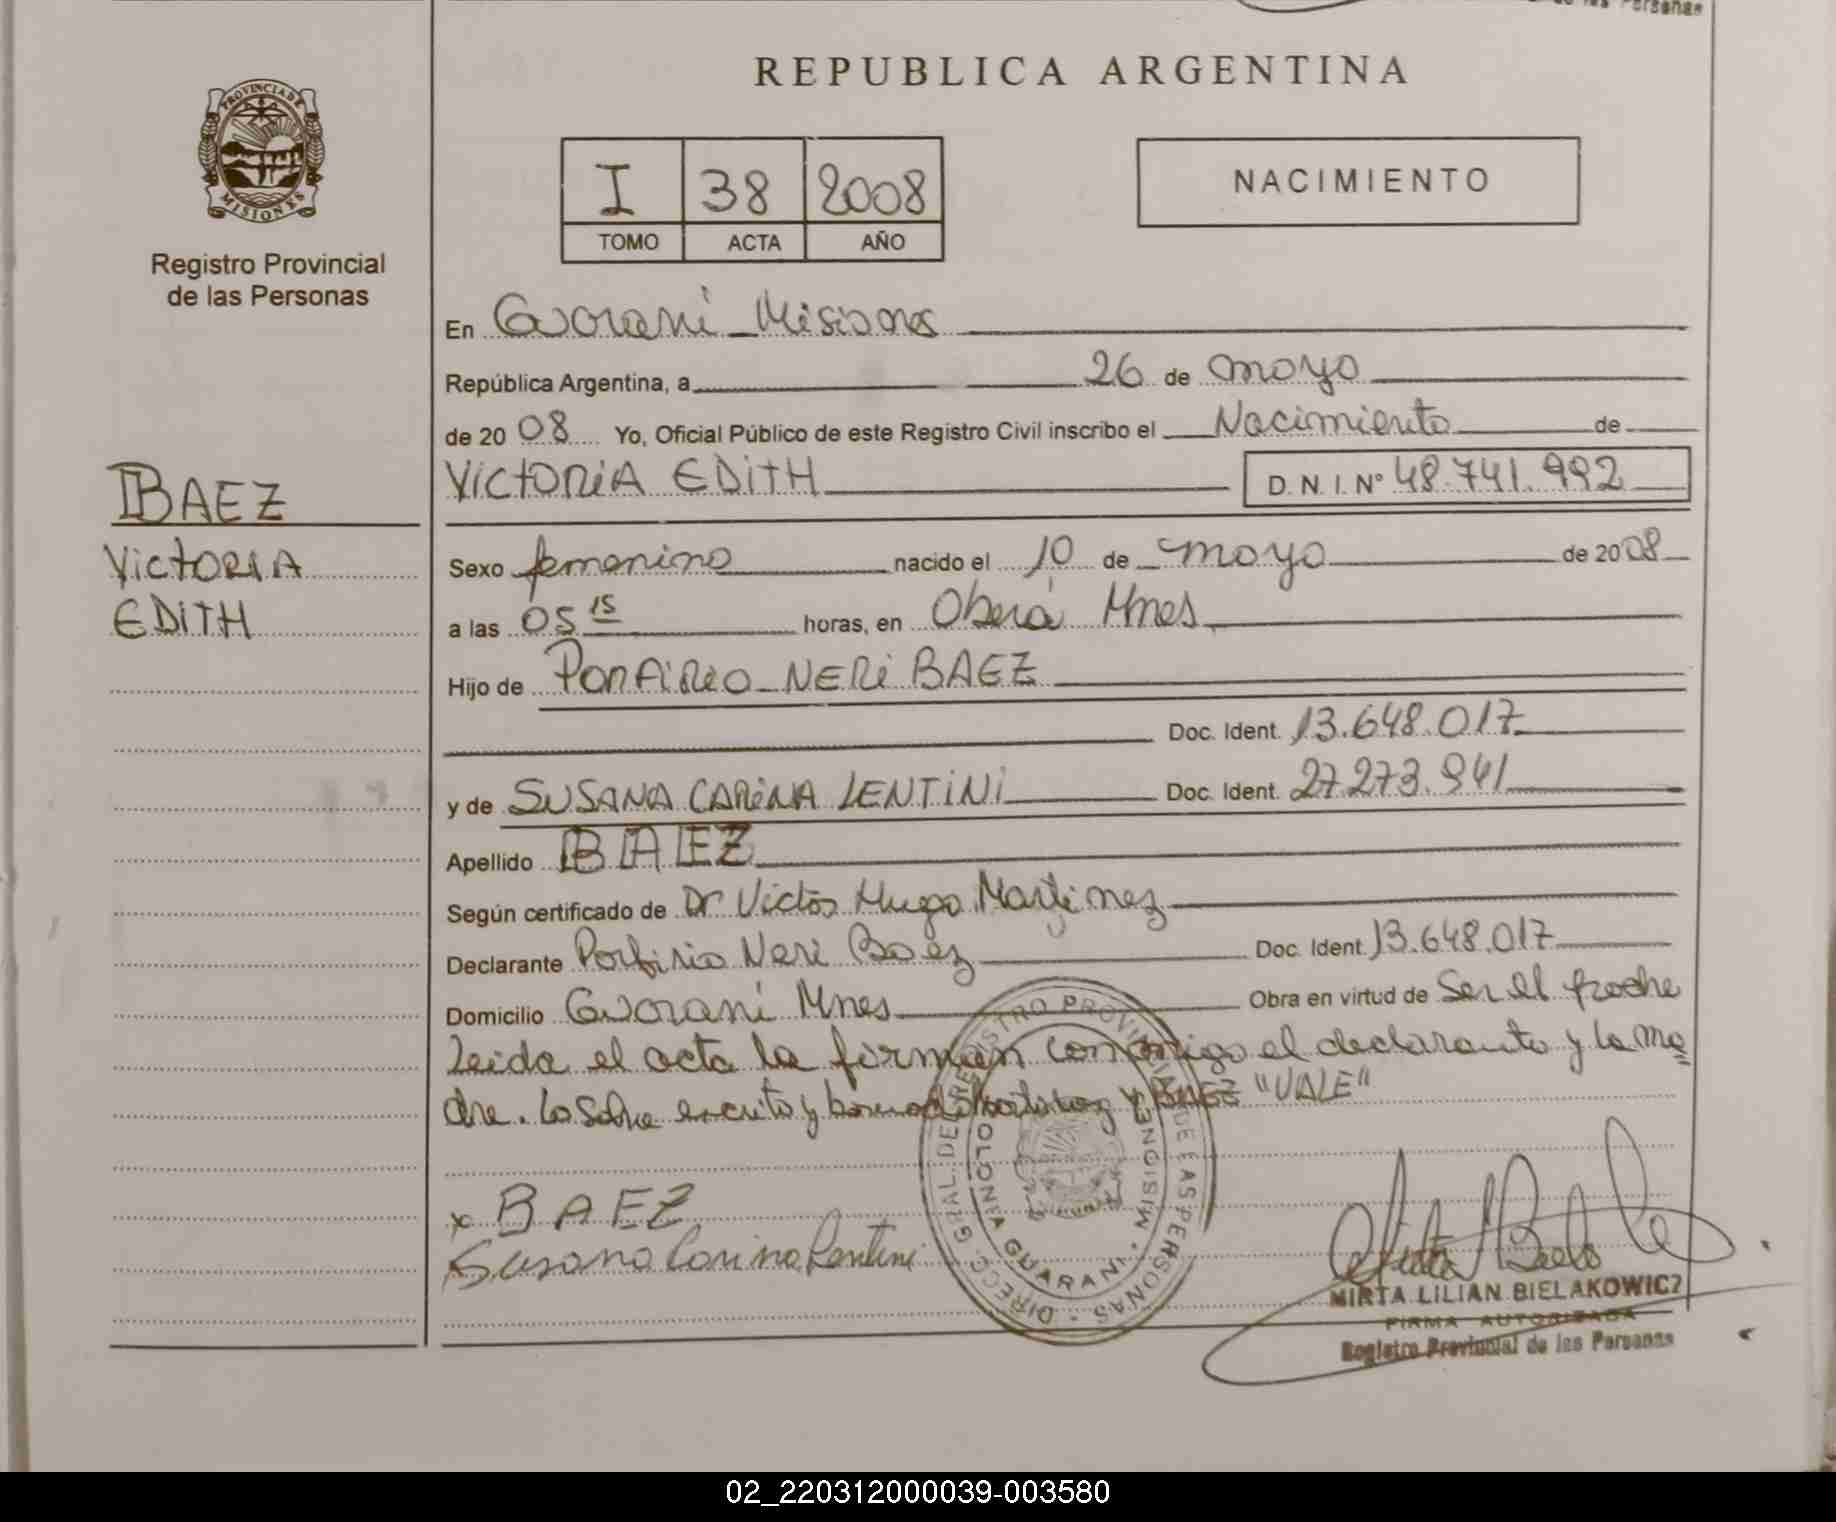 de las Personas
PROVINCIA DE
MISIONES
Registro Provincial
de las Personas
REPUBLICA ARGENTINA
I 38 2008
TOMO ACTA AÑO
NACIMIENTO
En Guarani - Misiones
República Argentina, a 26 de mayo
de 20 08 Yo, Oficial Público de este Registro Civil inscribo el Nacimiento de
BAEZ
VICTORIA
EDITH
VICTORIA EDITH D.N.I. Nº 48.741.992
Sexo femenino nacido el 10 de mayo de 2008
a las 05 15 horas, en Oberá Mnes
Hijo de PORFIRIO NERI BAEZ
Doc. Ident. 13.648.017
y de SUSANA CARINA LENTINI Doc. Ident. 27.273.941
Apellido BAEZ
Según certificado de Dr Victor Hugo Martinez
Declarante Porfirio Neri Baez Doc. Ident. 13.648.017
Domicilio Guarani Mnes Obra en virtud de Ser el padre
Leida el acta la firman conmigo el declarante y la ma=
dre. Lo sobre escrito y borrado Martinez y BAEZ "VALE"
x BAEZ
Susana Carina Lentini
DIRECC. GRAL. DE REGISTRO PROVINCIAL DE LAS PERSONAS
COLONIA GUARANI - MISIONES
MIRTA LILIAN BIELAKOWICZ
FIRMA AUTORIZADA
Registro Provincial de las Personas
02_220312000039-003580